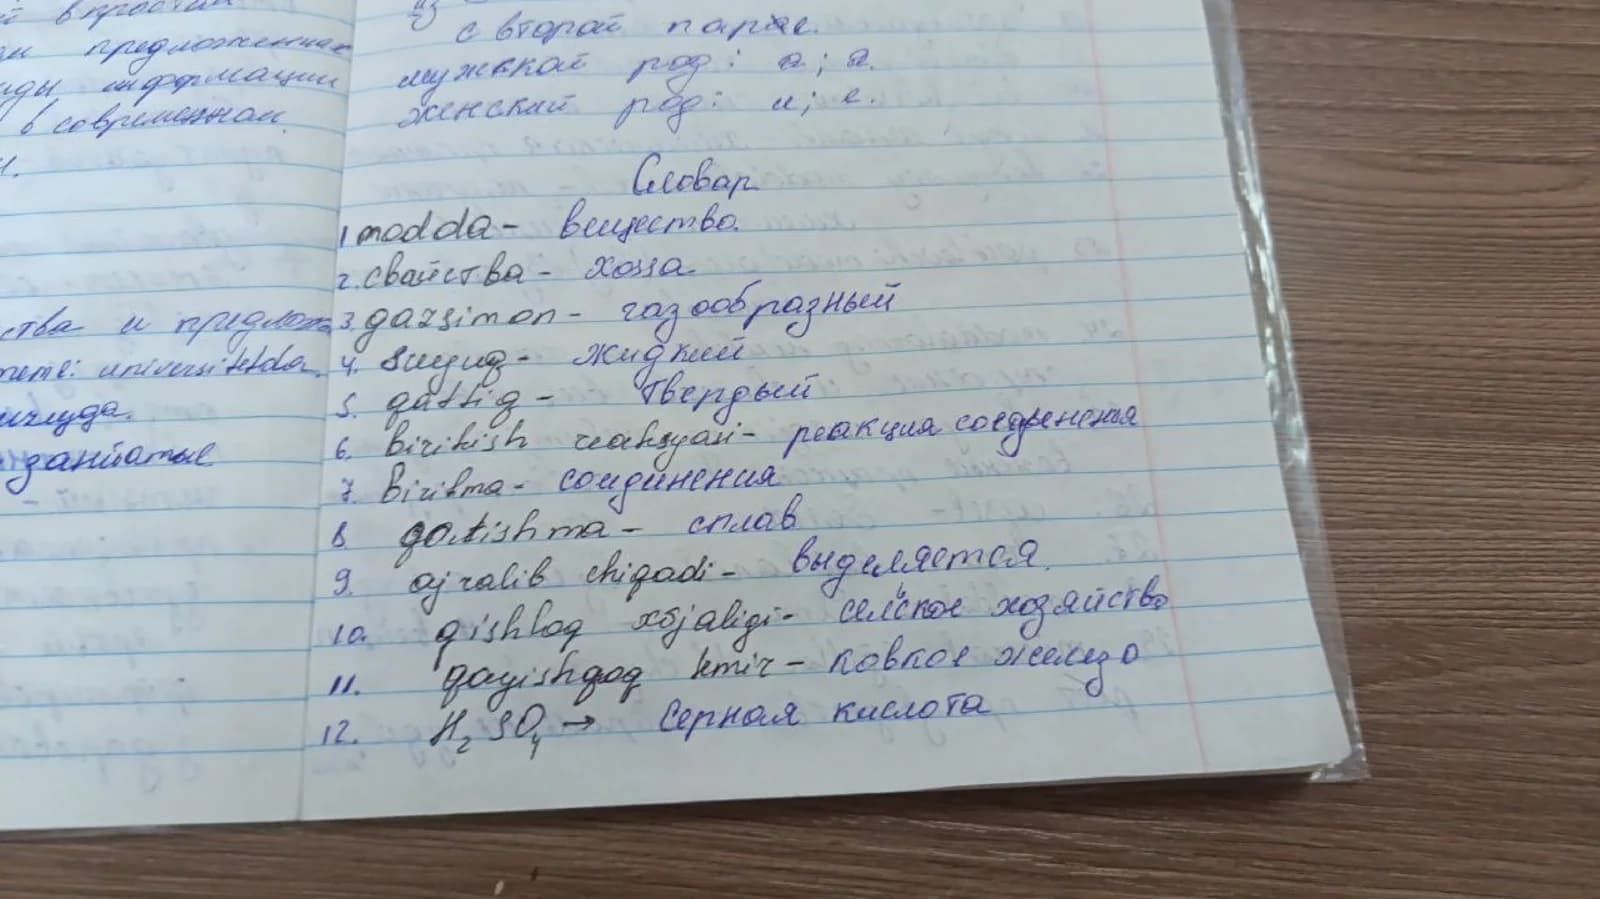 в простой
предложениях
информации
в современном.
ства и предлож
universitetda.
занятые
с второй парте.
мужской род: а; я.
женский род: и; е.
Словар
1 modda - вещество.
2. свайства - xossa
3. gazsimon - газообразный
4. suyuq - жидкий
5. qattiq - твердый
6. birikish reaksyasi - реакция соединения
7. birikma - соидинения
8. qotishma - сплав
9. ajralib chiqadi - выделяется.
10. qishloq xo'jaligi - сельское хозяйство
11. qayishqoq temir - ковкое железо
12. H₂SO₄ → Серная кислота